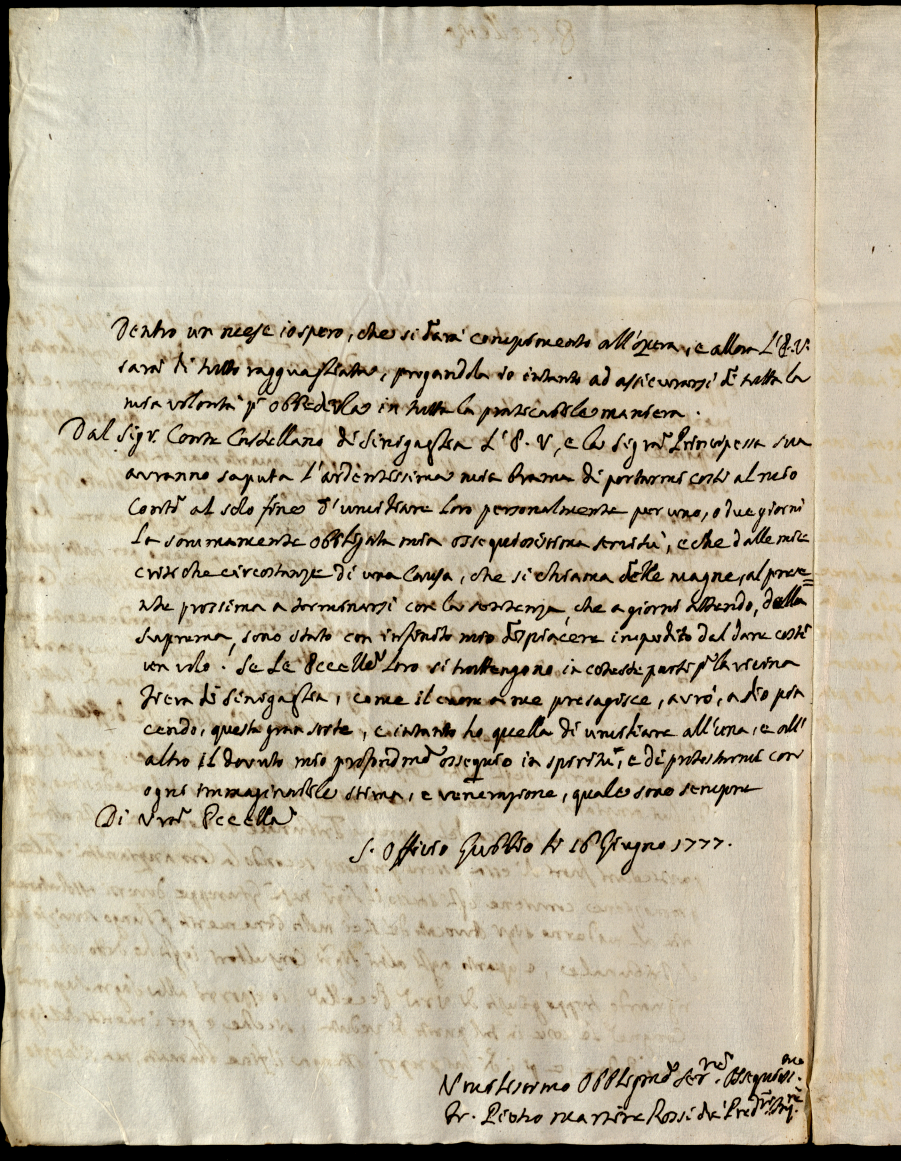 Dentro un mese io spero, che si darà compimento all'opera, e allora L'E. V.
sarà di tutto ragguagliata, pregandola io intanto ad assicurarsi di tutta la
mia volontà pr obbedirla in tutta la praticabile maniera.
Dal Sigr Conte Castellano di Senigaglia L'E. V., e la Sigra Principessa sua
avranno saputa l'ardentissima mia brama di portarmi costì al mio
Conte al solo fine d'umiliare Loro personalmente per uno, o due giorni
la sommamente obbligata mia ossequiosissima servitù, e che dalle mie
critiche circostanze di una Causa, che si chiama delle magne, al prese=
nte prossima a terminarsi con la sentenza, che a giorni attendo, della
Suprema, sono stato con infinito mio dispiacere impedito dal dare costì
un volo. Se Le Eccellze Loro si trattengono in coteste parti pr la vicina
Fiera di Senigaglia, come il cuore a me presagisce, avrò, a Dio pia
cendo, questa gran sorte, e intanto ho quella di umiliare all'una, e all'
altro il dovuto mio profondmo ossequio in spirito, e di protestarmi con
ogni immaginabile stima, e venerazione, quale sono sempre
Di Vra Eccellza
S. Offizio Gubbio li 16 Giugno 1777.
Umilissimo Obbligmo Serre Ossequiosmo
Fr. Pietro Martire Rossi de' Predri Inqre